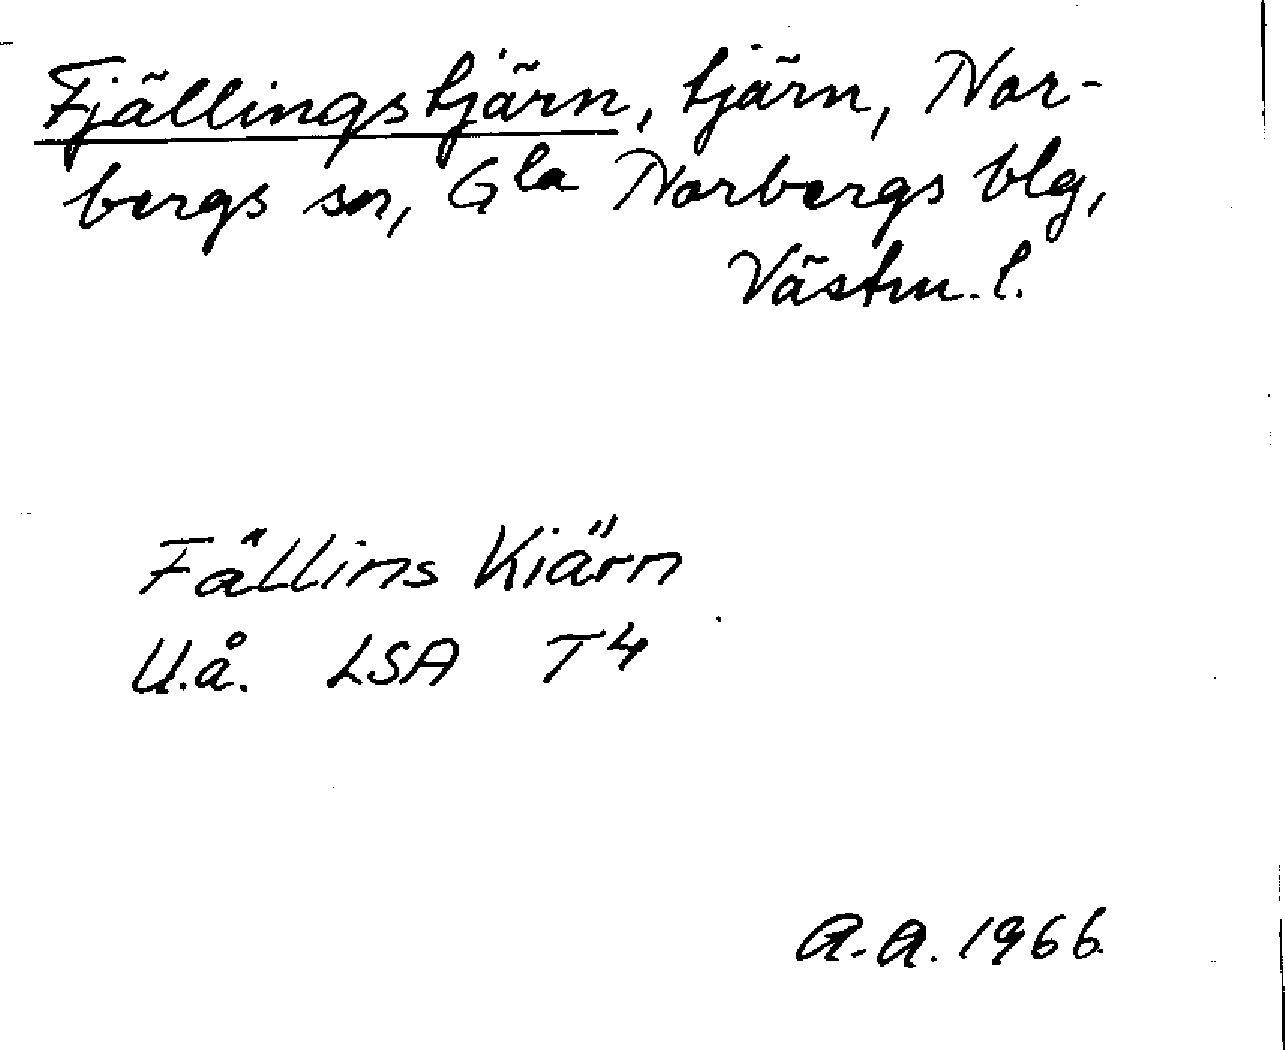 Fjällingstjärn, tjärn, Nor-
bergs sn, Gla Norbergs blg,
Västm. l.
Fällins Kiärn
U.å. LSA T4
A.A. 1966